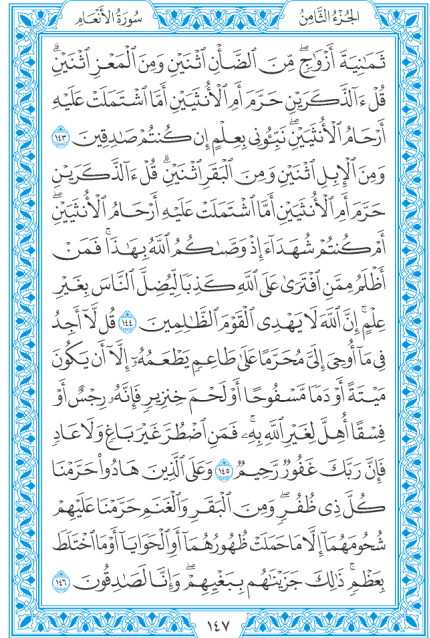 الجُزْءُ الثَّامِنُ
سُورَةُ الأَنْعَامِ
ثَمَٰنِيَةَ أَزْوَٰجٍۖ مِّنَ ٱلضَّأْنِ ٱثْنَيْنِ وَمِنَ ٱلْمَعْزِ ٱثْنَيْنِۗ
قُلْ ءَآلذَّكَرَيْنِ حَرَّمَ أَمِ ٱلْأُنثَيَيْنِ أَمَّا ٱشْتَمَلَتْ عَلَيْهِ
أَرْحَامُ ٱلْأُنثَيَيْنِۖ نَبِّـُٔونِى بِعِلْمٍ إِن كُنتُمْ صَٰدِقِينَ ١٤٣
وَمِنَ ٱلْإِبِلِ ٱثْنَيْنِ وَمِنَ ٱلْبَقَرِ ٱثْنَيْنِۗ قُلْ ءَآلذَّكَرَيْنِ
حَرَّمَ أَمِ ٱلْأُنثَيَيْنِ أَمَّا ٱشْتَمَلَتْ عَلَيْهِ أَرْحَامُ ٱلْأُنثَيَيْنِۖ
أَمْ كُنتُمْ شُهَدَآءَ إِذْ وَصَّىٰكُمُ ٱللَّهُ بِهَٰذَاۚ فَمَنْ
أَظْلَمُ مِمَّنِ ٱفْتَرَىٰ عَلَى ٱللَّهِ كَذِبًا لِّيُضِلَّ ٱلنَّاسَ بِغَيْرِ
عِلْمٍۚ إِنَّ ٱللَّهَ لَا يَهْدِى ٱلْقَوْمَ ٱلظَّٰلِمِينَ ١٤٤ قُل لَّآ أَجِدُ
فِى مَآ أُوحِىَ إِلَىَّ مُحَرَّمًا عَلَىٰ طَاعِمٍ يَطْعَمُهُۥٓ إِلَّآ أَن يَكُونَ
مَيْتَةً أَوْ دَمًا مَّسْفُوحًا أَوْ لَحْمَ خِنزِيرٍ فَإِنَّهُۥ رِجْسٌ أَوْ
فِسْقًا أُهِلَّ لِغَيْرِ ٱللَّهِ بِهِۦۚ فَمَنِ ٱضْطُرَّ غَيْرَ بَاغٍ وَلَا عَادٍ
فَإِنَّ رَبَّكَ غَفُورٌ رَّحِيمٌ ١٤٥ وَعَلَى ٱلَّذِينَ هَادُوا۟ حَرَّمْنَا
كُلَّ ذِى ظُفُرٍۖ وَمِنَ ٱلْبَقَرِ وَٱلْغَنَمِ حَرَّمْنَا عَلَيْهِمْ
شُحُومَهُمَآ إِلَّا مَا حَمَلَتْ ظُهُورُهُمَآ أَوِ ٱلْحَوَايَآ أَوْ مَا ٱخْتَلَطَ
بِعَظْمٍۚ ذَٰلِكَ جَزَيْنَٰهُم بِبَغْيِهِمْۖ وَإِنَّا لَصَٰدِقُونَ ١٤٦
١٤٧